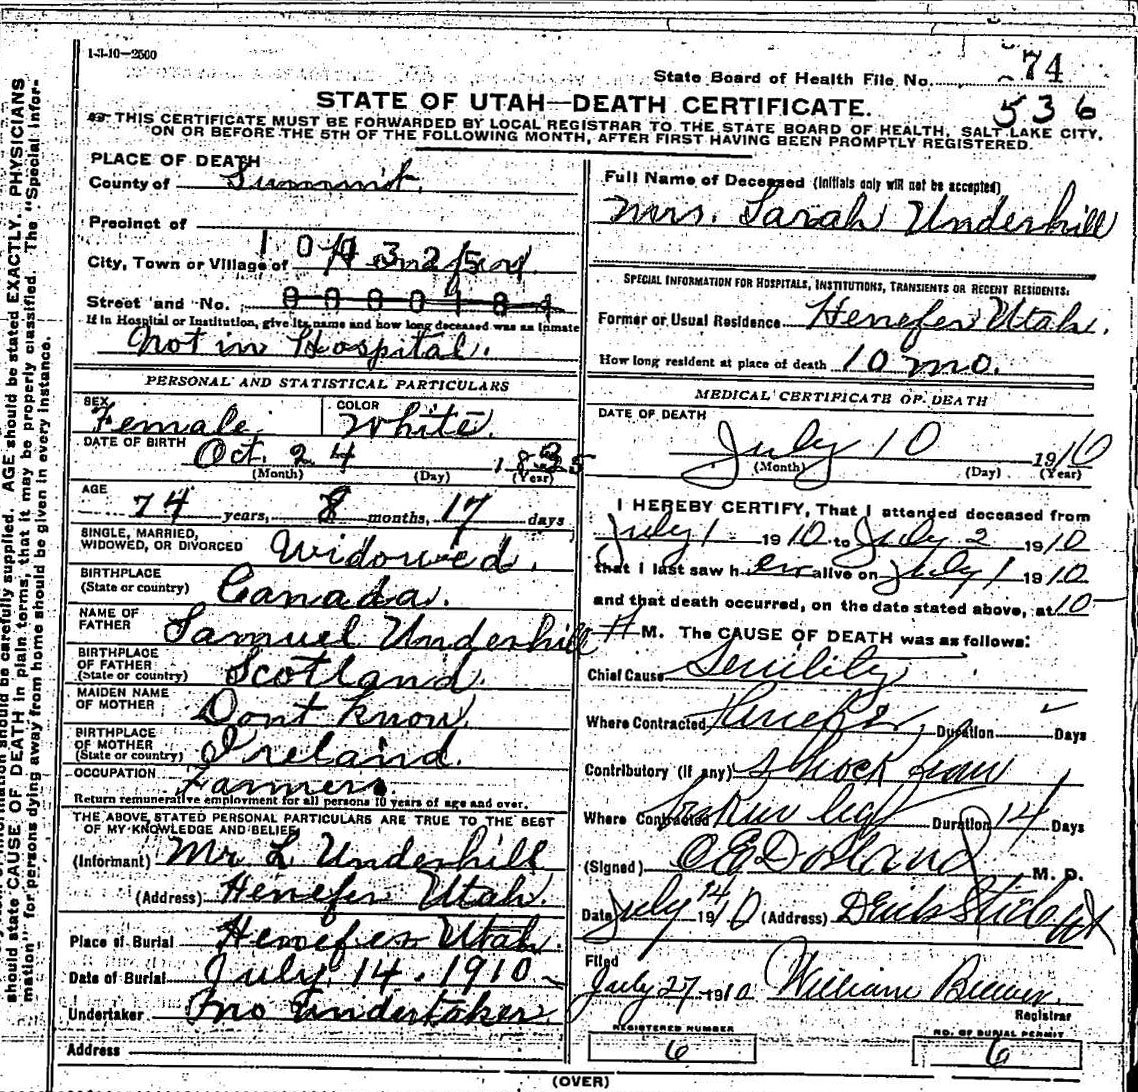 1-3-10—2500
State Board of Health File No. 74
536
STATE OF UTAH—DEATH CERTIFICATE.
THIS CERTIFICATE MUST BE FORWARDED BY LOCAL REGISTRAR TO THE STATE BOARD OF HEALTH, SALT LAKE CITY,
ON OR BEFORE THE 5TH OF THE FOLLOWING MONTH, AFTER FIRST HAVING BEEN PROMPTLY REGISTERED.
PLACE OF DEATH
County of Summit.
Precinct of
City, Town or Village of
Street and No. 0000184
If in Hospital or Institution, give its name and how long deceased was an inmate
Not in Hospital.
PERSONAL AND STATISTICAL PARTICULARS
SEX Female
COLOR White.
DATE OF BIRTH Oct. 24
(Month) (Day) (Year)
AGE 74 years, 8 months, 17 days
SINGLE, MARRIED,
WIDOWED, OR DIVORCED Widowed.
BIRTHPLACE
(State or country) Canada.
NAME OF
FATHER Samuel Underhill
BIRTHPLACE
OF FATHER
(State or country) Scotland.
MAIDEN NAME
OF MOTHER Dont know.
BIRTHPLACE
OF MOTHER
(State or country) Ireland.
OCCUPATION Farmers.
Return remunerative employment for all persons 10 years of age and over.
THE ABOVE STATED PERSONAL PARTICULARS ARE TRUE TO THE BEST
OF MY KNOWLEDGE AND BELIEF
(Informant) Mr L. Underhill
(Address) Henefer Utah.
Place of Burial Henefer Utah.
Date of Burial July 14. 1910
Undertaker no Undertaker
Address
Full Name of Deceased (Initials only will not be accepted)
Mrs. Sarah Underhill
SPECIAL INFORMATION FOR HOSPITALS, INSTITUTIONS, TRANSIENTS OR RECENT RESIDENTS:
Former or Usual Residence Henefer Utah.
How long resident at place of death 10 mo.
MEDICAL CERTIFICATE OF DEATH
DATE OF DEATH
July 10 1910
(Month) (Day) (Year)
I HEREBY CERTIFY, That I attended deceased from
July 1 1910 to July 2 1910
that I last saw her alive on July 1 1910
and that death occurred, on the date stated above, at 10
M. The CAUSE OF DEATH was as follows:
Chief Cause Senility
Where Contracted Henefer, Duration Days
Contributory (if any) Shock from
Where Contracted broken leg Duration 14 Days
(Signed) M. D.
Date July 14 1910 (Address)
Filed
July 27 1910 William Brewer
Registrar
REGISTERED NUMBER
6
NO. OF BURIAL PERMIT
6
(OVER)
should be carefully supplied. AGE should be stated EXACTLY. PHYSICIANS
should state CAUSE OF DEATH in plain terms, that it may be properly classified. The "Special Infor-
mation" for persons dying away from home should be given in every instance.